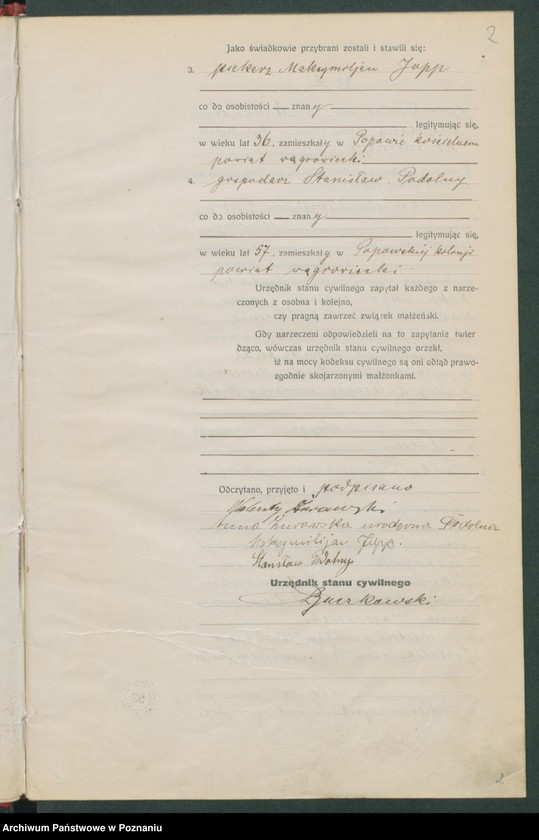 2
Jako świadkowie przybrani zostali i stawili się:
3. piekarz Maksymiljan Japp
co do osobistości znany
legitymując się,
w wieku lat 36, zamieszkały w Popowie kościelnem
powiat wągrowiecki
4. gospodarz Stanisław Podolny
co do osobistości znany
legitymując się,
w wieku lat 57, zamieszkały w Popowskiej kolonji
powiat wągrowiecki
Urzędnik stanu cywilnego zapytał każdego z narze-
czonych z osobna i kolejno,
czy pragną zawrzeć związek małżeński.
Gdy narzeczeni odpowiedzieli na to zapytanie twier
dząco, wówczas urzędnik stanu cywilnego orzekł,
iż na mocy kodeksu cywilnego są oni odtąd prawo-
zgodnie skojarzonymi małżonkami.
Odczytano, przyjęto i podpisano
Walenty Żurawski
Anna Żurawska urodzona Podolna
Maksymiljan Japp.
Stanisław Podolny
Urzędnik stanu cywilnego
Buczkowski
2
Archiwum Państwowe w Poznaniu